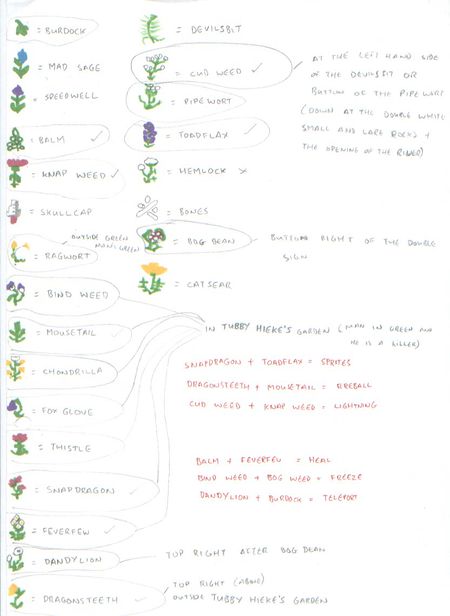 = BURDOCK
= MAD SAGE
= SPEEDWELL
= BALM ✓
= KNAP WEED ✓
= SKULLCAP
OUTSIDE GREEN
= RAGWORT
= BIND WEED
= MOUSETAIL ✓
= CHONDRILLA
= FOX GLOVE
= THISTLE
= SNAPDRAGON ✓
= FEVERFEW ✓
= DANDYLION
= DRAGONSTEETH ✓
= DEVILSBIT
= CUD WEED ✓
= PIPEWORT
= TOADFLAX ✓
= HEMLOCK X
= BONES
= BOG BEAN
= CATSEAR
AT THE LEFT HAND SIDE
OF THE DEVILSBIT OR
BUTTOM OF THE PIPE WORT
(DOWN AT THE DOUBLE WHITE
SMALL AND LARE ROCKS +
THE OPENING OF THE RIVER)
BUTTOM RIGHT OF THE DOUBLE
SIGN
IN TUBBY HIEKE'S GARDEN (MAN IN GREEN AND
HE IS A KILLER)
SNAPDRAGON + TOADFLAX = SPRITES
DRAGONSTEETH + MOUSETAIL = FIREBALL
CUD WEED + KNAP WEED = LIGHTNING
BALM + FEVERFEU = HEAL
BIND WEED + BOG WEED = FREEZE
DANDYLION + BURDOCK = TELEPORT
TOP RIGHT AFTER BOG BEAN
TOP RIGHT (ABOVE)
OUTSIDE TUBBY HIEKE'S GARDEN